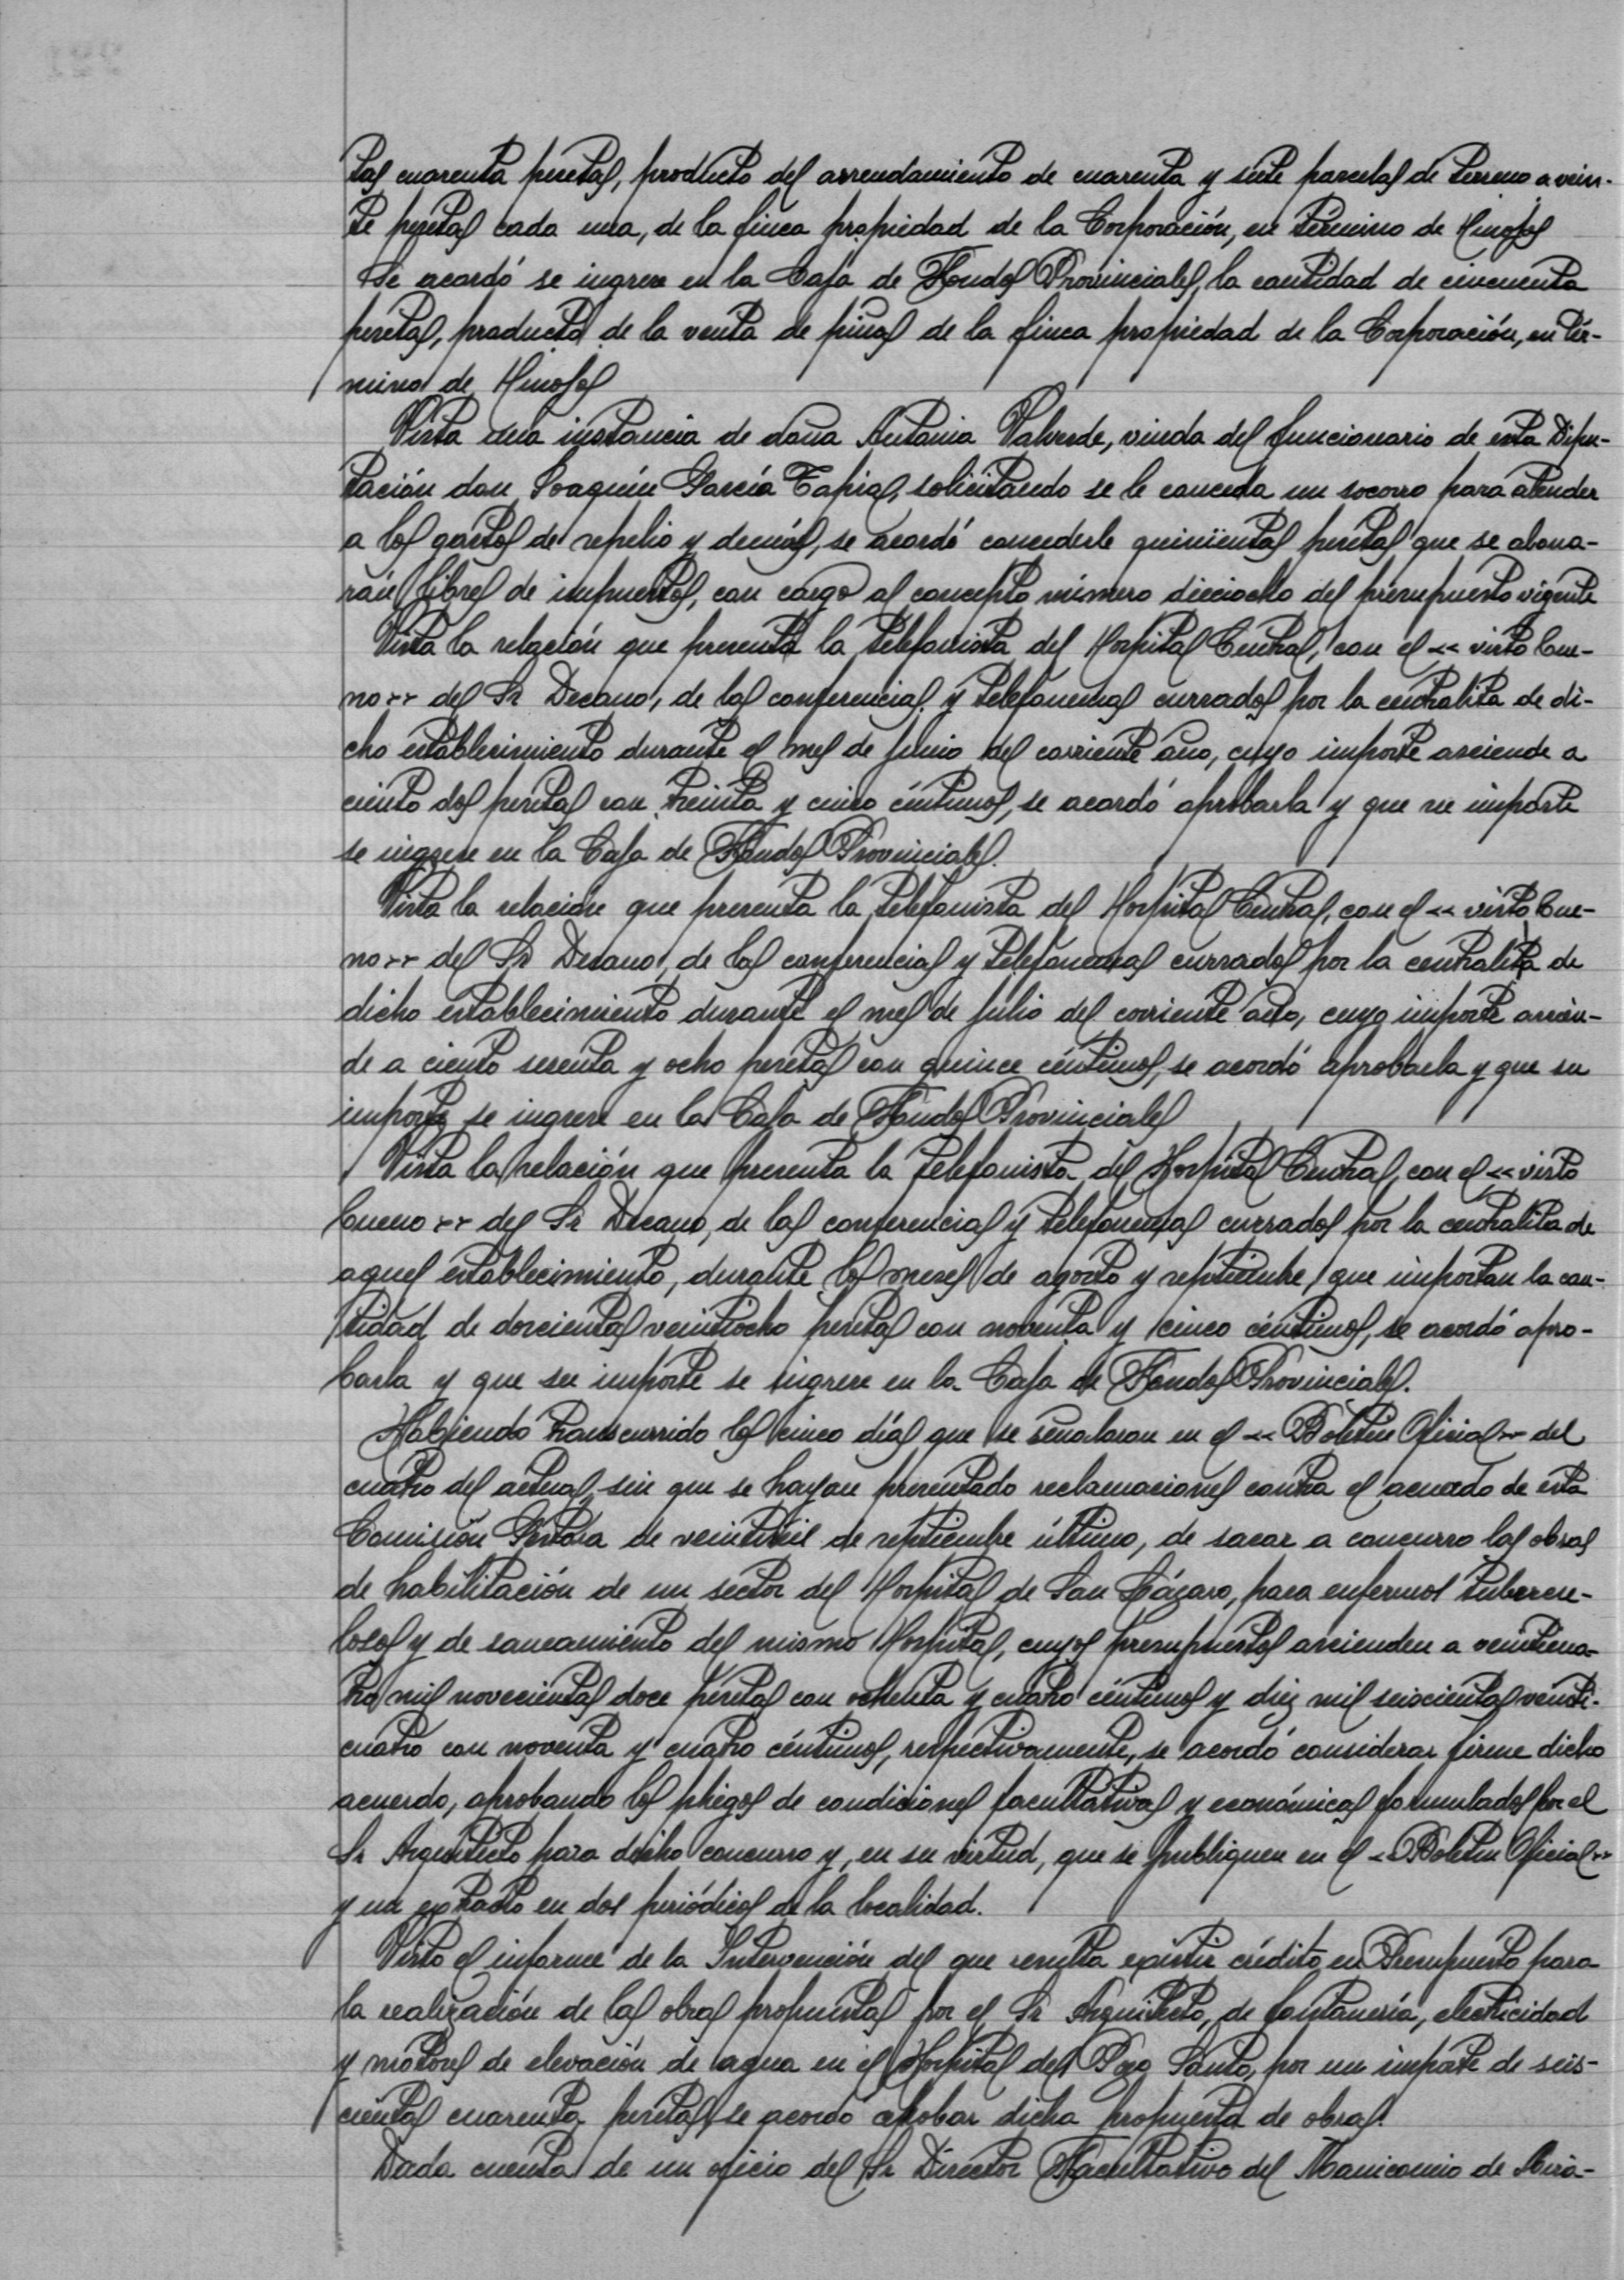 tas cuarenta pesetas, producto del arrendamiento de cuarenta y siete parcelas de terreno a vein-
te pesetas cada una, de la finca propiedad de la Corporación, en término de Hinojos
Se acordó se ingrese en la Caja de Fondos Provinciales, la cantidad de cincuenta
pesetas, producto de la venta de piñas de la finca propiedad de la Corporación, en tér-
mino de Hinojos
Vista una instancia de doña Antonia Valverde, viuda del funcionario de esta Dipu-
tación don Joaquín García Tapial, solicitando se le conceda un socorro para atender
a los gastos de sepelio y demás, se acordó concederle quinientas pesetas que se abona-
rán libres de impuestos, con cargo al concepto número dieciocho del presupuesto vigente
Vista la relación que presenta la telefonista del Hospital Central, con el << visto bue-
no >> del Sr Decano, de las conferencias y telefonemas cursados por la centralita de di-
cho establecimiento durante el mes de junio del corriente año, cuyo importe asciende a
ciento dos pesetas con treinta y cinco céntimos, se acordó aprobarla y que su importe
se ingrese en la Caja de Fondos Provinciales.
Vista la relación que presenta la telefonista del Hospital Central, con el << visto bue-
no >> del Sr Decano, de las conferencias y telefonemas cursados por la centralita de
dicho establecimiento durante el mes de julio del corriente año, cuyo importe ascien-
de a ciento sesenta y ocho pesetas con quince céntimos, se acordó aprobarla y que su
importe se ingrese en la Caja de Fondos Provinciales
Vista la relación que presenta la telefonista del Hospital Central, con el << visto
bueno >> del Sr Decano, de las conferencias y telefonemas cursados por la centralita de
aquel establecimiento, durante los meses de agosto y septiembre, que importan la can-
tidad de doscientas veintiocho pesetas con noventa y cinco céntimos, se acordó apro-
barla y que su importe se ingrese en la Caja de Fondos Provinciales.
Habiendo transcurrido los cinco días que se señalaron en el << Boletín Oficial >> del
cuatro del actual, sin que se hayan presentado reclamaciones contra el acuerdo de esta
Comisión Gestora de veintiséis de septiembre último, de sacar a concurso las obras
de habilitación de un sector del Hospital de San Lázaro, para enfermos tubercu-
losos y de saneamiento del mismo Hospital, cuyos presupuestos ascienden a veinticua-
tro mil novecientas doce pesetas con ochenta y cuatro céntimos y diez mil seiscientas veinti-
cuatro con noventa y cuatro céntimos, respectivamente, se acordó considerar firme dicho
acuerdo, aprobando los pliegos de condiciones facultativas y económicas formulados por el
Sr Arquitecto para dicho concurso y, en su virtud, que se publiquen en el << Boletín Oficial >>
y un extracto en dos periódicos de la localidad.
Visto el informe de la Intervención del que resulta existir crédito en Presupuesto para
la realización de las obras propuestas por el Sr Arquitecto, de fontanería, electricidad
y motores de elevación de agua en el Hospital del Pozo Santo, por un importe de seis-
cientas cuarenta pesetas, se acordó aprobar dicha propuesta de obras.
Dada cuenta de un oficio del Sr Director Facultativo del Manicomio de Mira-